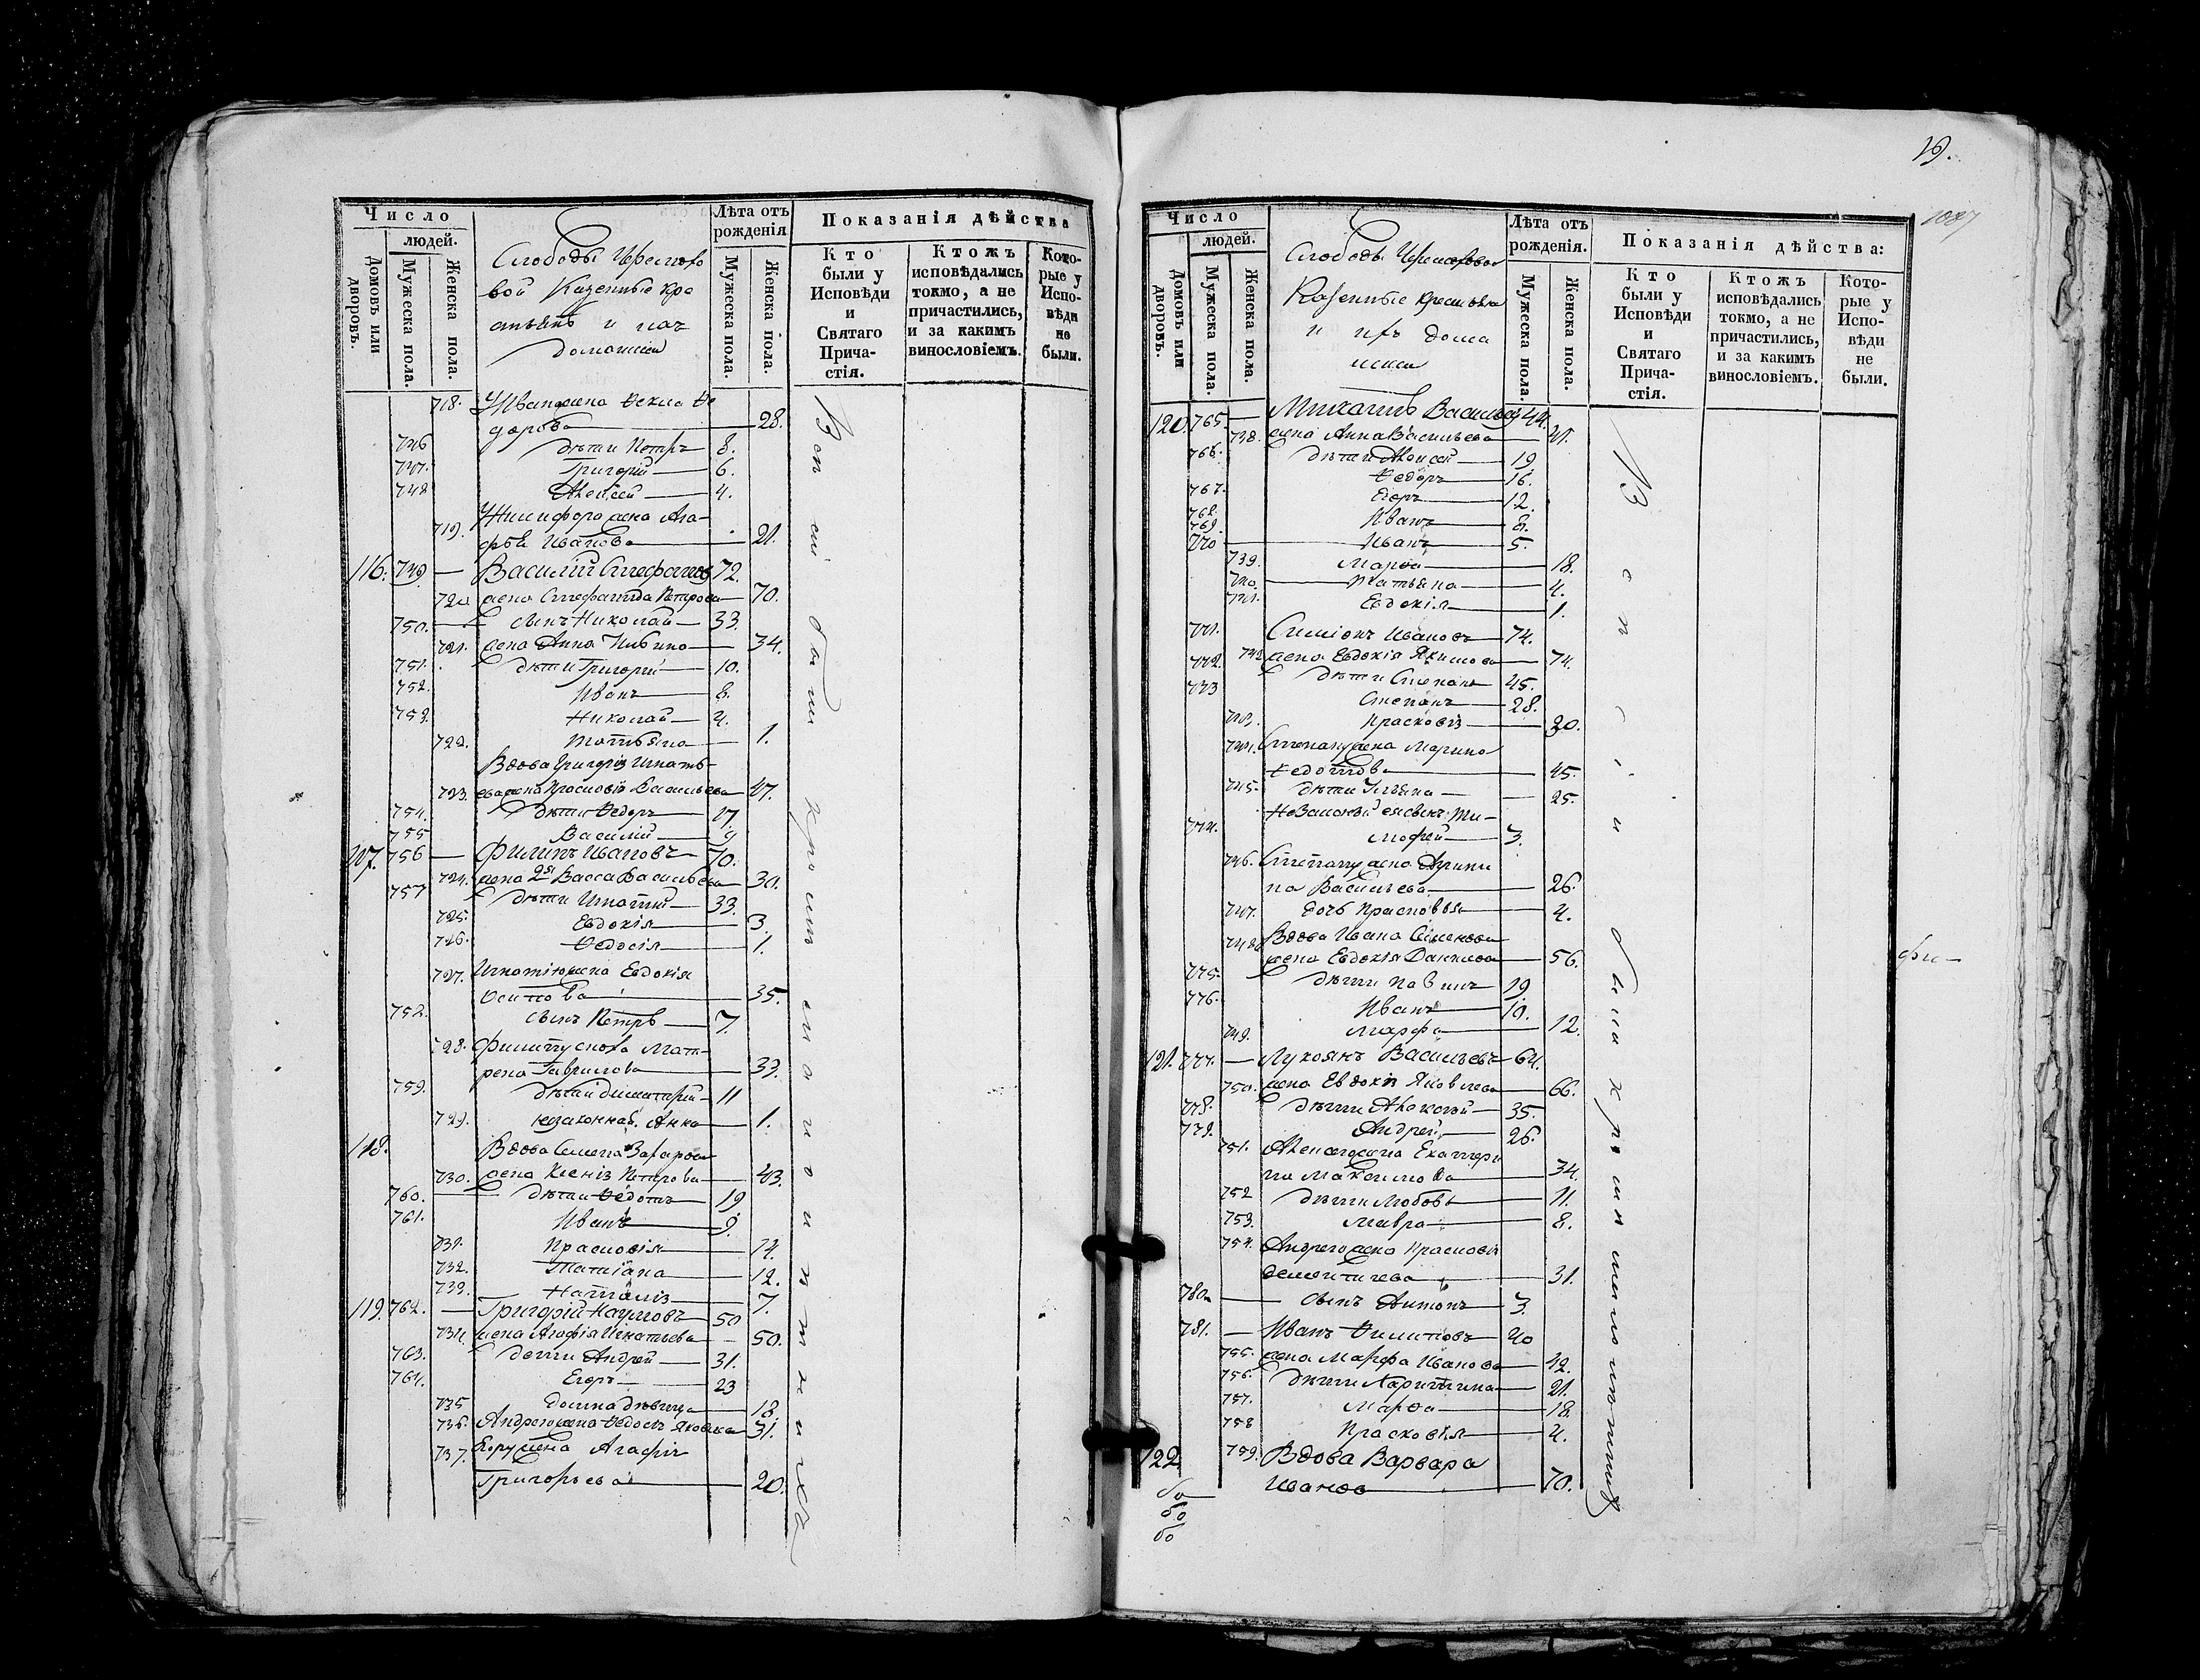 Число
людей.
Домовъ или дворовъ.
Мужеска пола.
Женска пола.
Слободы
вой Казенные кре
стьянъ и
домашнии
Лѣта отъ
рожденія
Мужеска пола.
Женска пола.
Показанія дѣйства
Кто
были у
Исповѣди
и
Святаго
Прича-
стія.
Ктожъ
исповѣдались
токмо, а не
причастились,
и за какимъ
винословіемъ.
Кото-
рые у
Испо-
вѣди
не
были.
718. жена Текла Ѳе
дорова 28.
746 дѣти Петръ 8.
747. Григорій 6.
748 Алексей 4.
719. Никифора жена Ага-
фья Иванова 21.
116. 749 — Василій Стефановъ 72.
720 жена Стефанида Петрова 70.
750. сынъ Николай 33.
721. жена Анна 34.
751. дѣти Григорій 10.
752. Иванъ 8.
753. Николай 4.
722. Татьяна 1.
Вдова Григорія Игнать-
723. ева жена Прасковія Васильева 47.
754. дѣти Ѳедоръ 17.
755 Василій 9
117. 756 — Филипъ Ивановъ 70.
724. жена 2я Васса Васильева 30.
757 дѣти Игнатій 33.
725. Евдокія 3.
726. Ѳедосія 1.
727. Игнатію жена Евдокія
Осипова 35.
752. сынъ Петръ 7.
728. Филиппу сноха Мат-
рена Гаврилова 33.
759. дѣти Димитрій 11
729. незаконная Анна 1.
118. Вдова Семена Захарова
730. жена Ксенія Петрова 43.
760. дѣти Ѳедотъ 19
761. Иванъ 9.
731. Прасковія 14.
732. Татіана 12.
733. Наталія 7.
119. 762. — Григорій Наумовъ 50
734. жена Агафія Игнатьева 50.
763. дети Андрей 31.
764. Егоръ 23
735 Домна дѣвица 18.
736. Андрею жена Ѳедосья Яковлева 31.
737. Егору жена Агафія
Григорьева 20.
19.
1087
Число
людей.
Домовъ или дворовъ.
Мужеска пола
Женска пола.
Слободы
Казенные крестьяне
и ихъ дома
шнии
Лѣта отъ
рожденія.
Мужеска пола.
Женска пола.
Показанія дѣйства:
Кто
были у
Исповѣди
и
Святаго
Прича-
стія.
Ктожъ
исповѣдались
токмо, а не
причастились,
и за какимъ
винословіемъ.
Кото-
рые у
Испо-
вѣди
не
были.
120. 765. — Михаилъ Васильевъ 44.
738. жена Анна Васильева 41.
766. дѣти Алексей 19
Ѳедоръ 16.
767. Егоръ 12.
768. Иванъ 8.
769.
770 Иванъ 5.
739. Марѳа 18.
740. Татьяна 4.
741. Евдокія 1.
771. Симіонъ Ивановъ 74.
772. 742 жена Евдокія Якимова 74.
773 дѣти Степанъ 45.
Степанъ 28.
743. Прасковія 20.
744. Степану жена Марина
Ѳедотова 45.
745. дѣти Ульяна 25.
Незаконный ея сынъ Ти-
774. мофей 3.
746. Степану жена Агрипи
на Васильева 26.
747. дочь Прасковья 4.
748 Вдова Ивана Семенова
жена Евдокія Данилова 56.
775. дѣти Павилъ 19
776. Иванъ 10.
749. Марфа 12.
121. 777. — Лукоянъ Васильевъ 64.
750. жена Евдокія Яковлева 66.
778. дѣти Алексѣй 35.
779. Андрей 26.
751. Алексею жена Екатери
на Максимова 34.
752 дѣти Любовь 11.
753. Мавра 8.
754. Андрею жена Прасковія
Дементиева 31.
780. — сынъ Антонъ 3.
781. — Иванъ Филиповъ 40
755. жена Марфа Иванова 42.
756. дѣти Харитина 21.
757. Марѳа 18.
758 Прасковія 4.
122. 759. Вдова Варвара
Иванова 70.